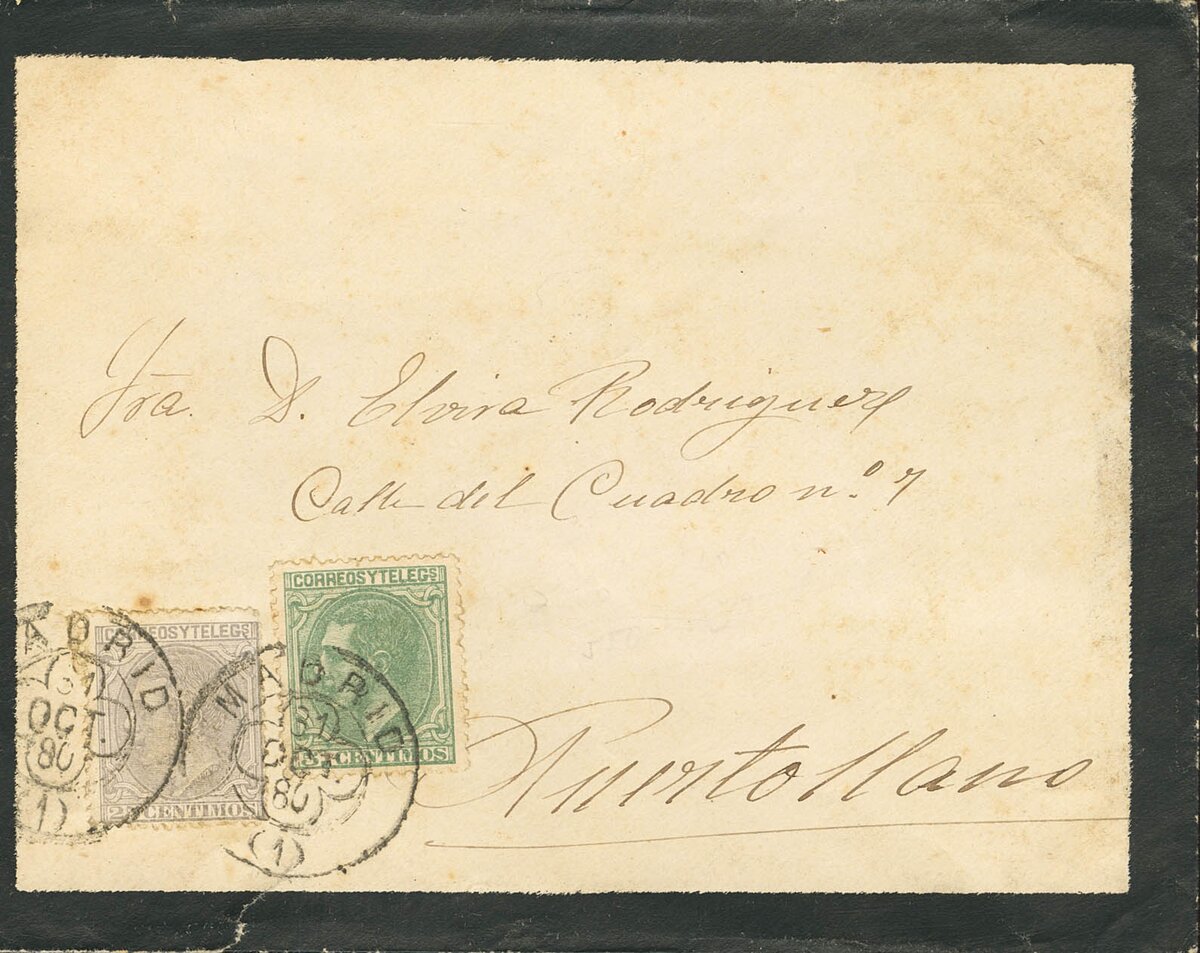 Sra. D. Elvira Rodriguez
Calle del Cuadro n.º 7
Puertollano
CORREOS Y TELEGS
5 CENTIMOS
CORREOS Y TELEGS
25 CENTIMOS
MADRID
31
OCT.
80
(1)
MADRID
31
OCT.
80
(1)